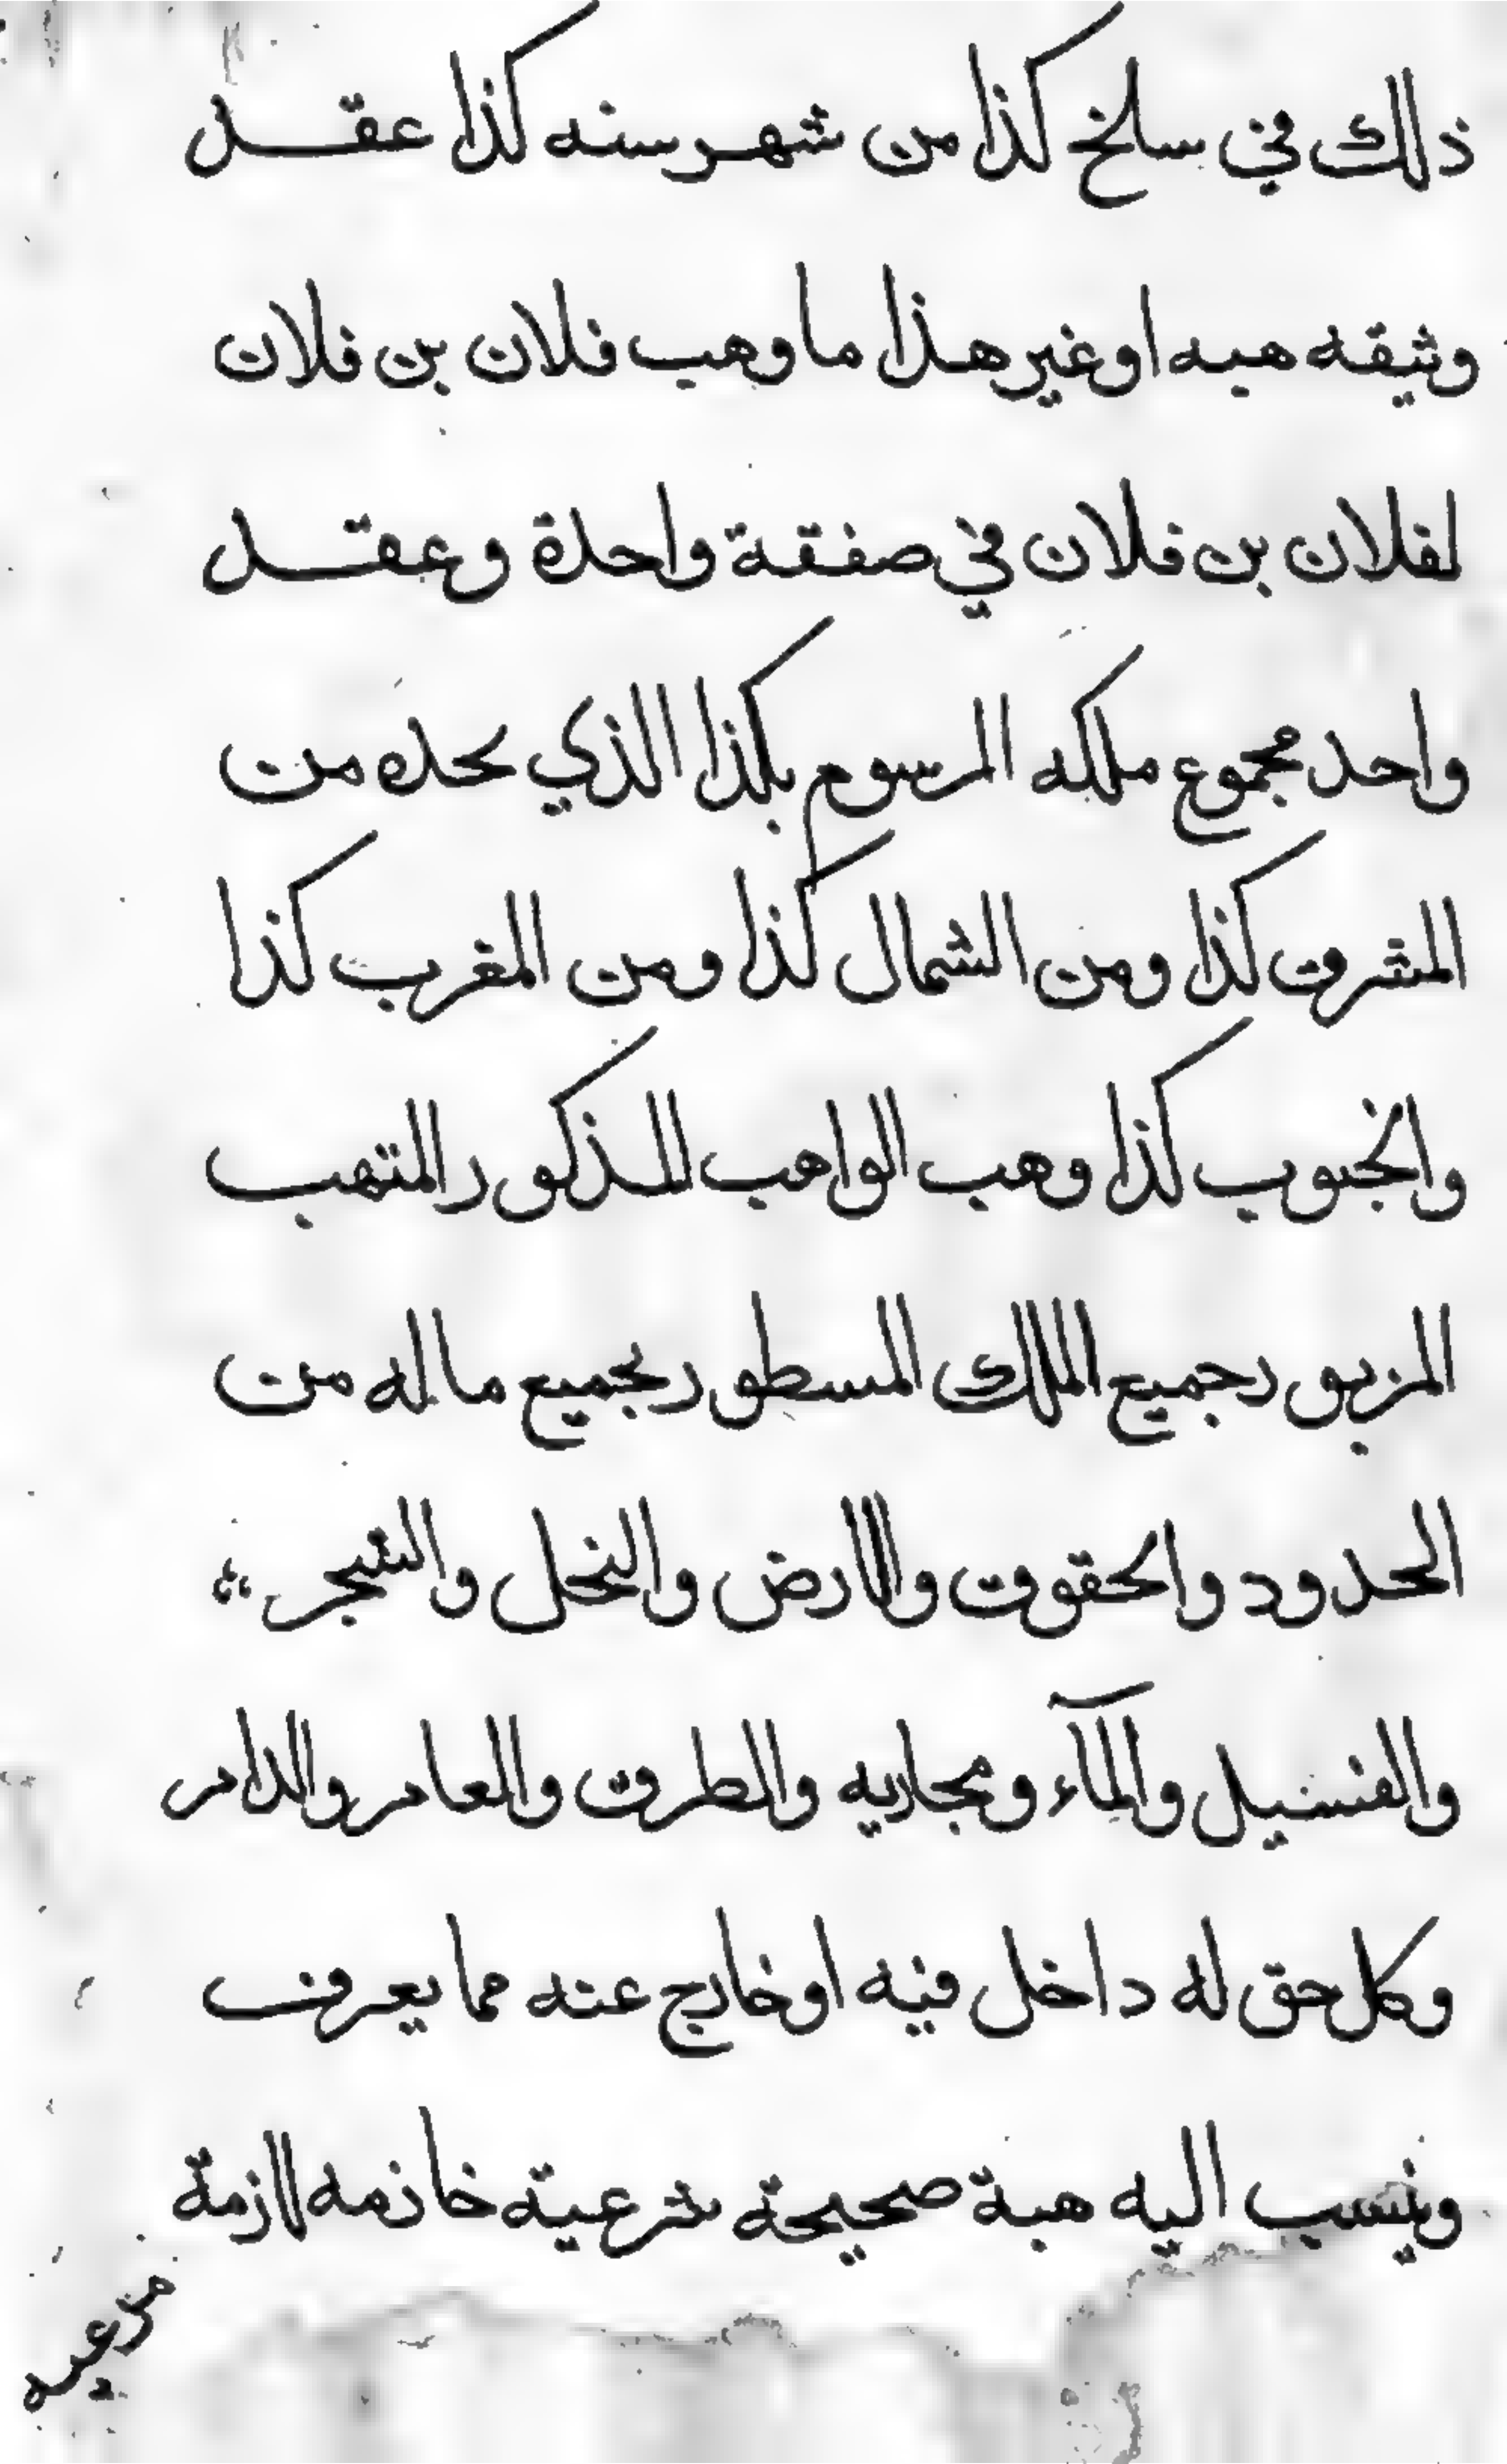 ذلك في سلخ كذا من شهر سنه كذا عقد
وثيقه هبه او غير هذا ما وهب فلان بن فلان
لفلان بن فلان في صفقة واحدة وعقد
واحد مجموع ملكه المرسوم بكذا الذي يحده من
المشرق كذا ومن الشمال كذا ومن المغرب كذا
والجنوب كذا وهب الواهب المذكور المتهب
المزبور جميع الملك المسطور بجميع ماله من
الحدود والحقوق والارض والنخل والشجر
والفسيل والمآء ومجاريه والطرق والعامر والدامر
وكل حق له داخل فيه او خارج عنه مما يعرف
وينسب اليه هبة صحيحة شرعية خازمه لازمة
مرعيه